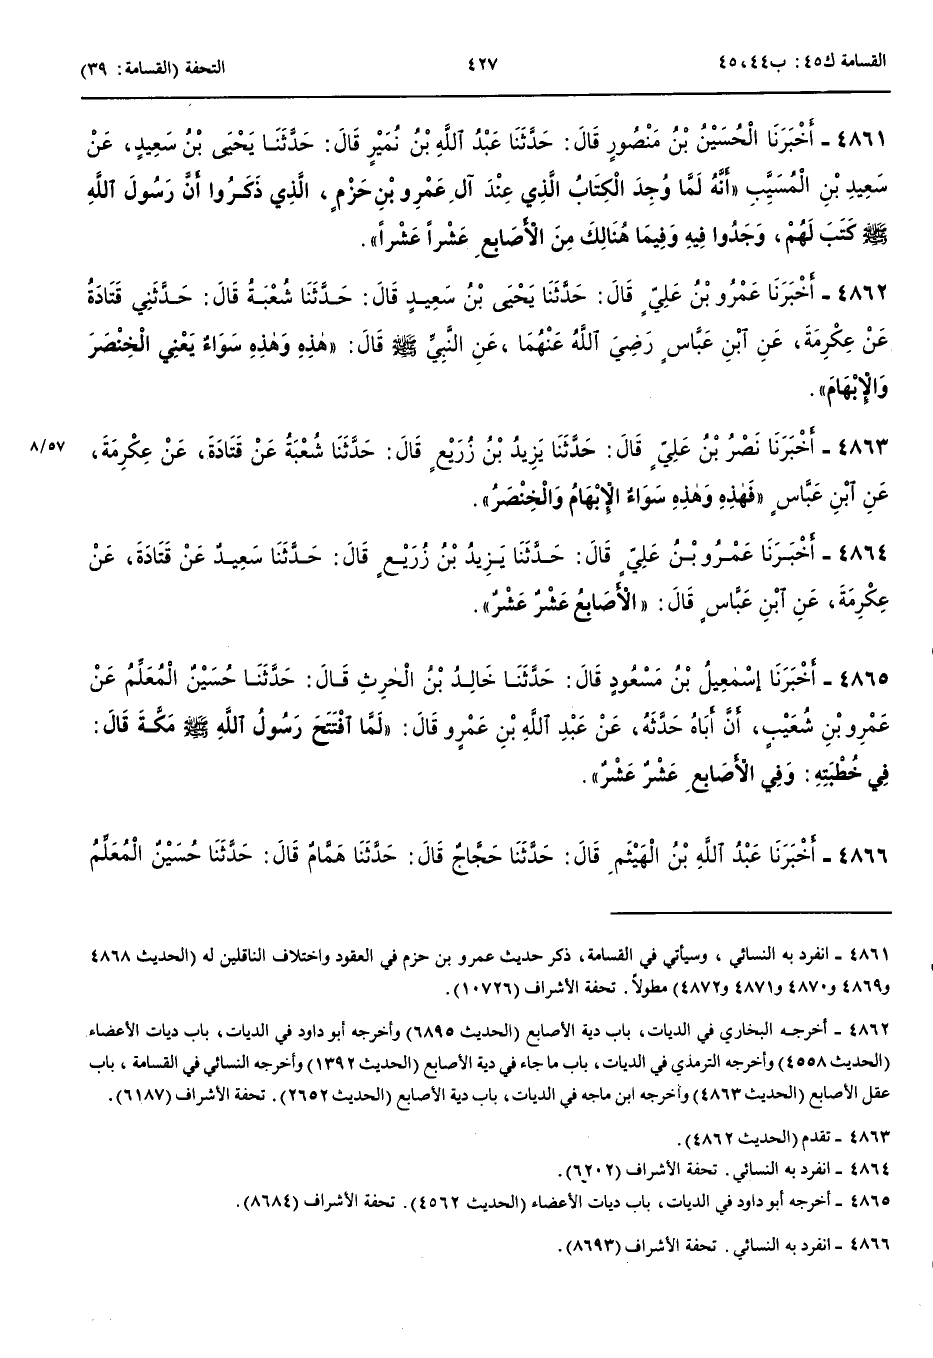 القسامة ك٤٥: ب٤٤، ٤٥
٤٢٧
التحفة (القسامة: ٣٩)
٤٨٦١ - أَخْبَرَنَا الْحُسَيْنُ بْنُ مَنْصُورٍ قَالَ: حَدَّثَنَا عَبْدُ ٱللَّهِ بْنُ نُمَيْرٍ قَالَ: حَدَّثَنَا يَحْيَى بْنُ سَعِيدٍ، عَنْ
سَعِيدِ بْنِ الْمُسَيَّبِ «أَنَّهُ لَمَّا وُجِدَ الْكِتَابُ الَّذِي عِنْدَ آلِ عَمْرِو بْنِ حَزْمٍ، الَّذِي ذَكَرُوا أَنَّ رَسُولَ ٱللَّهِ
ﷺ كَتَبَ لَهُمْ، وَجَدُوا فِيهِ وَفِيمَا هُنَالِكَ مِنَ الْأَصَابِعِ عَشْراً عَشْراً».
٤٨٦٢ - أَخْبَرَنَا عَمْرُو بْنُ عَلِيٍّ قَالَ: حَدَّثَنَا يَحْيَى بْنُ سَعِيدٍ قَالَ: حَدَّثَنَا شُعْبَةُ قَالَ: حَدَّثَنِي قَتَادَةُ
عَنْ عِكْرِمَةَ، عَنِ ٱبْنِ عَبَّاسٍ رَضِيَ ٱللَّهُ عَنْهُمَا، عَنِ النَّبِيِّ ﷺ قَالَ: «هٰذِهِ وَهٰذِهِ سَوَاءٌ يَعْنِي الْخِنْصَرَ
وَالْإِبْهَامَ».
٤٨٦٣ - أَخْبَرَنَا نَصْرُ بْنُ عَلِيٍّ قَالَ: حَدَّثَنَا يَزِيدُ بْنُ زُرَيْعٍ قَالَ: حَدَّثَنَا شُعْبَةُ عَنْ قَتَادَةَ، عَنْ عِكْرِمَةَ،
٨/٥٧
عَنِ ٱبْنِ عَبَّاسٍ «فَهٰذِهِ وَهٰذِهِ سَوَاءٌ الْإِبْهَامُ وَالْخِنْصَرُ».
٤٨٦٤ - أَخْبَرَنَا عَمْرُو بْنُ عَلِيٍّ قَالَ: حَدَّثَنَا يَزِيدُ بْنُ زُرَيْعٍ قَالَ: حَدَّثَنَا سَعِيدٌ عَنْ قَتَادَةَ، عَنْ
عِكْرِمَةَ، عَنِ ٱبْنِ عَبَّاسٍ قَالَ: «الْأَصَابِعُ عَشْرٌ عَشْرٌ».
٤٨٦٥ - أَخْبَرَنَا إِسْمٰعِيلُ بْنُ مَسْعُودٍ قَالَ: حَدَّثَنَا خَالِدُ بْنُ الْحٰرِثِ قَالَ: حَدَّثَنَا حُسَيْنٌ الْمُعَلِّمُ عَنْ
عَمْرِو بْنِ شُعَيْبٍ، أَنَّ أَبَاهُ حَدَّثَهُ، عَنْ عَبْدِ ٱللَّهِ بْنِ عَمْرٍو قَالَ: «لَمَّا ٱفْتَتَحَ رَسُولُ ٱللَّهِ ﷺ مَكَّةَ قَالَ:
فِي خُطْبَتِهِ: وَفِي الْأَصَابِعِ عَشْرٌ عَشْرٌ».
٤٨٦٦ - أَخْبَرَنَا عَبْدُ ٱللَّهِ بْنُ الْهَيْثَمِ قَالَ: حَدَّثَنَا حَجَّاجٌ قَالَ: حَدَّثَنَا هَمَّامٌ قَالَ: حَدَّثَنَا حُسَيْنٌ الْمُعَلِّمُ
٤٨٦١ - انفرد به النسائي، وسيأتي في القسامة، ذكر حديث عمرو بن حزم في العقود واختلاف الناقلين له (الحديث ٤٨٦٨
و٤٨٦٩ و٤٨٧٠ و٤٨٧١ و٤٨٧٢) مطولاً. تحفة الأشراف (١٠٧٢٦).
٤٨٦٢ - أخرجه البخاري في الديات، باب دية الأصابع (الحديث ٦٨٩٥) وأخرجه أبو داود في الديات، باب ديات الأعضاء
(الحديث ٤٥٥٨) وأخرجه الترمذي في الديات، باب ما جاء في دية الأصابع (الحديث ١٣٩٢) وأخرجه النسائي في القسامة، باب
عقل الأصابع (الحديث ٤٨٦٣) وأخرجه ابن ماجه في الديات، باب دية الأصابع (الحديث ٢٦٥٢). تحفة الأشراف (٦١٨٧).
٤٨٦٣ - تقدم (الحديث ٤٨٦٢).
٤٨٦٤ - انفرد به النسائي. تحفة الأشراف (٦٢٠٢).
٤٨٦٥ - أخرجه أبو داود في الديات، باب ديات الأعضاء (الحديث ٤٥٦٢). تحفة الأشراف (٨٦٨٤).
٤٨٦٦ - انفرد به النسائي. تحفة الأشراف (٨٦٩٣).